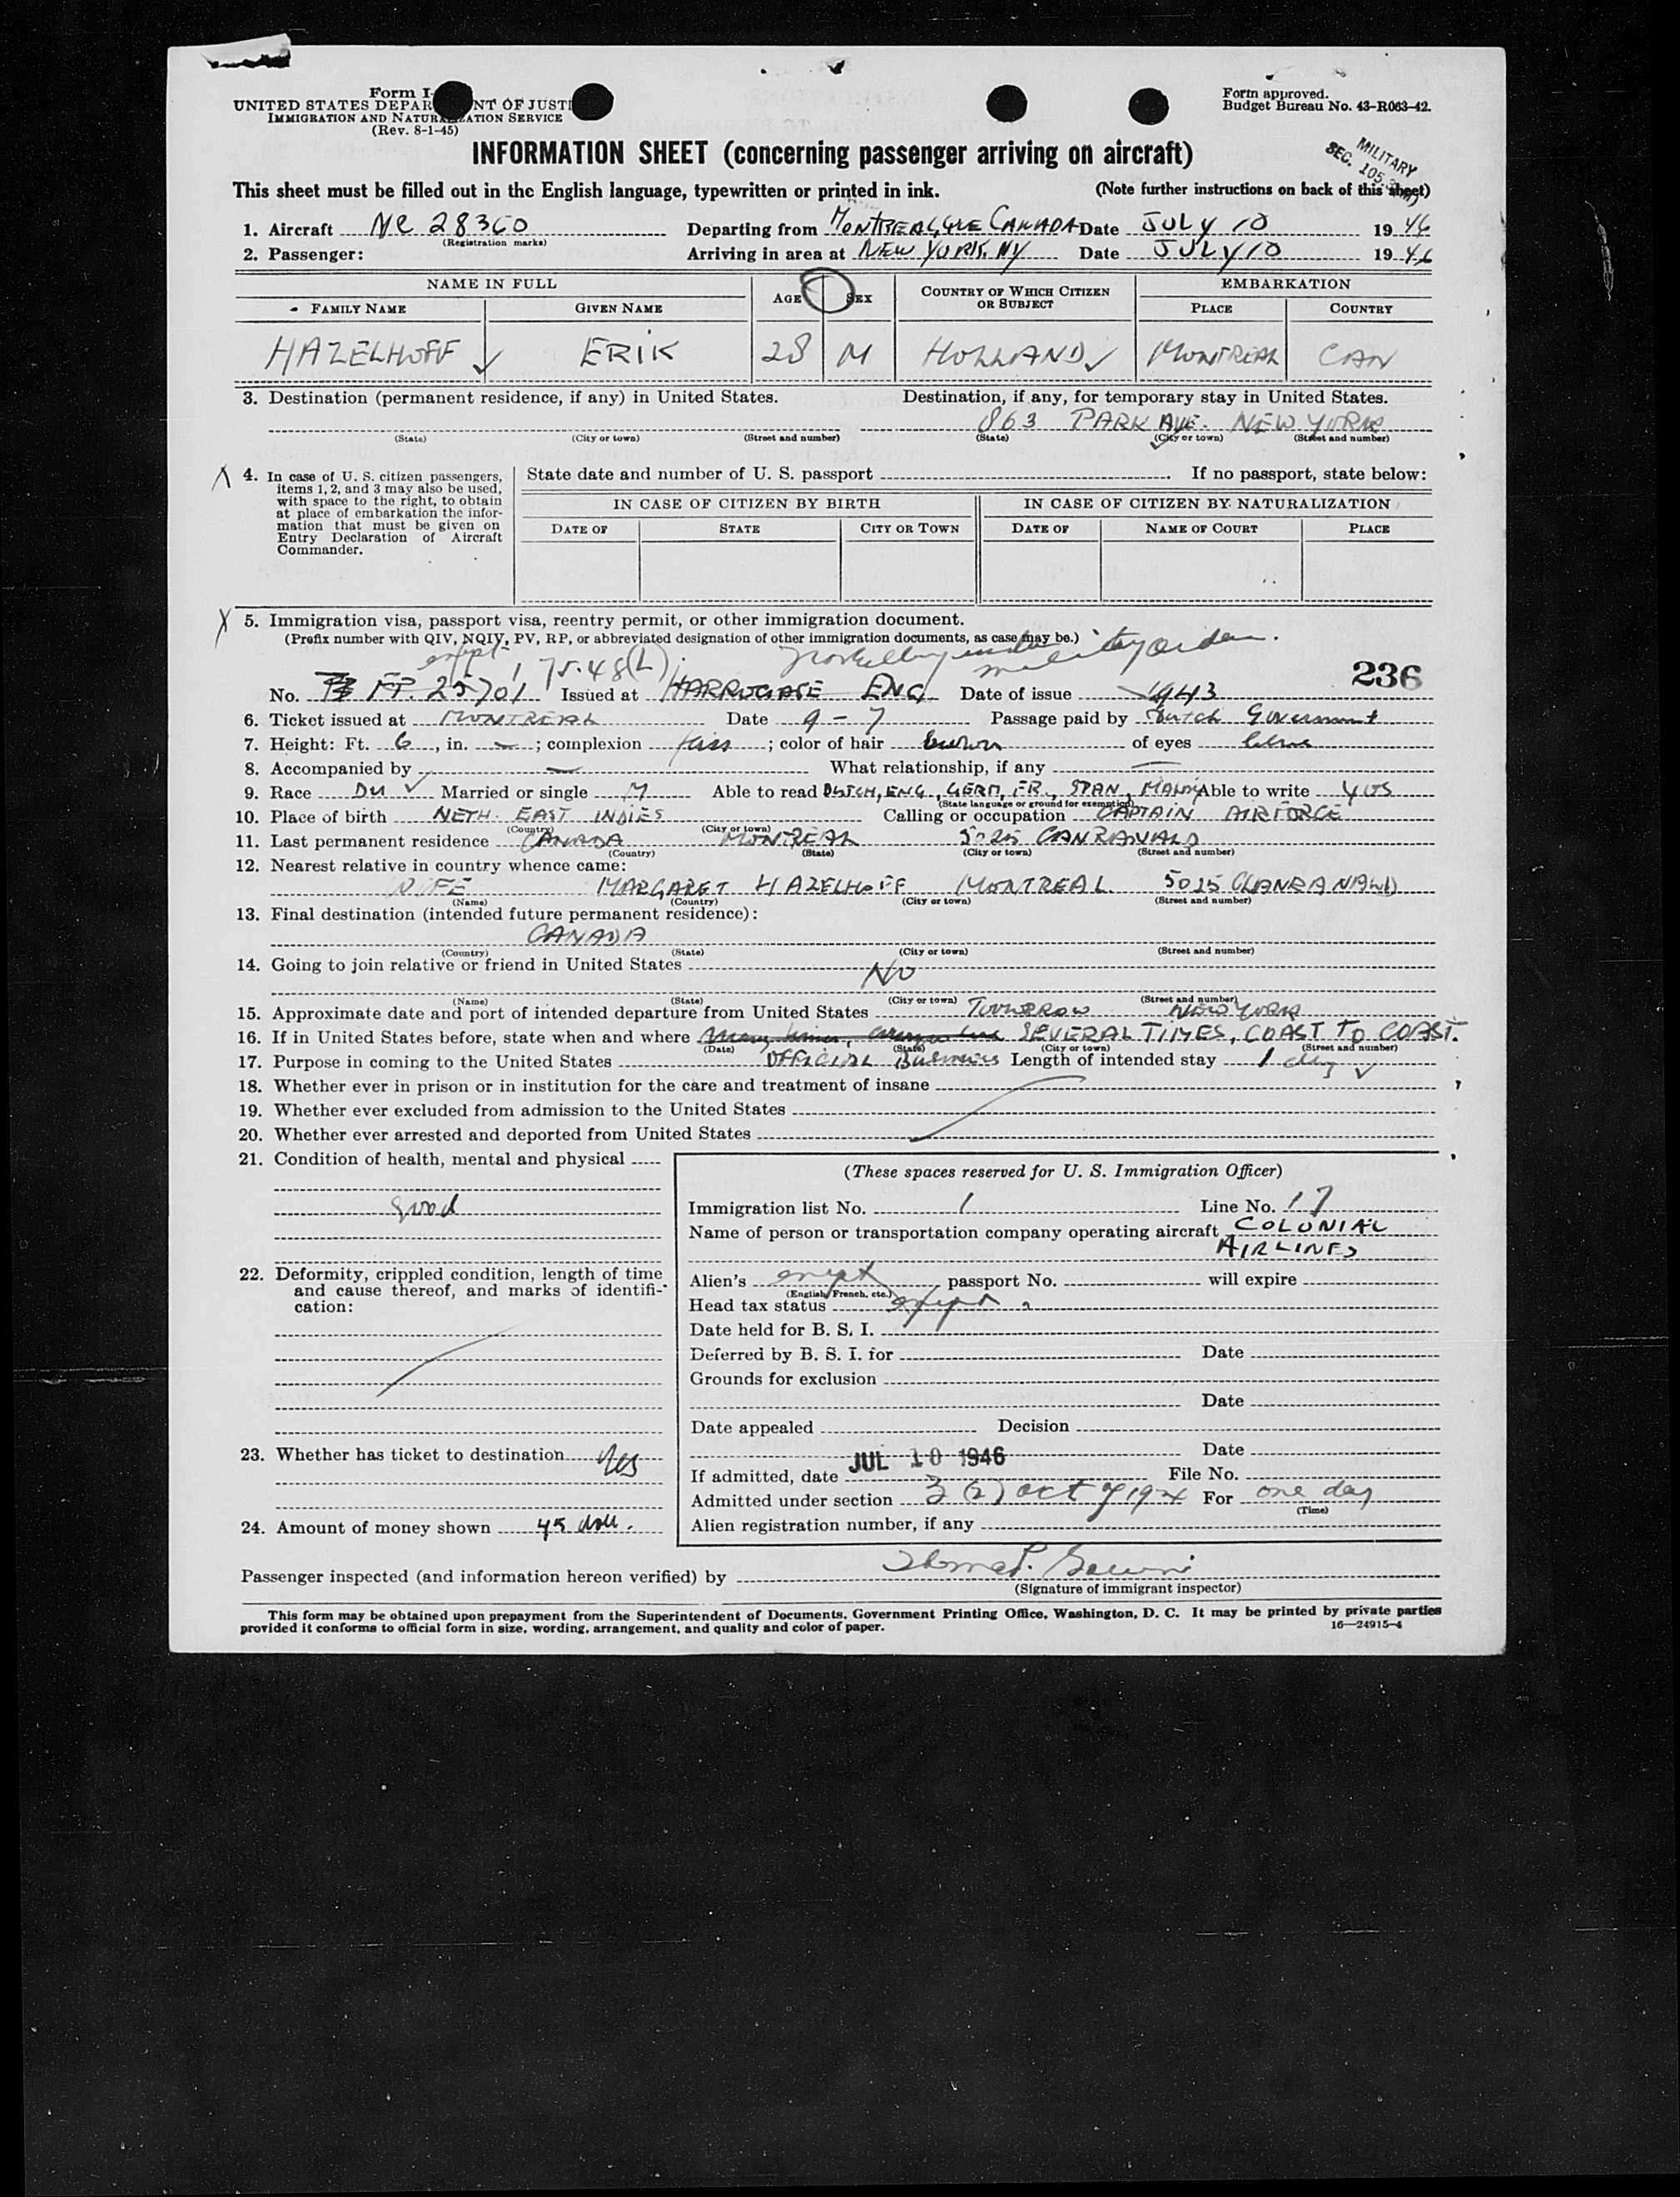 Form I-
UNITED STATES DEPAR NT OF JUSTI
IMMIGRATION AND NATURALIZATION SERVICE
(Rev. 8-1-45)
Form approved.
Budget Bureau No. 43-R063-42.
INFORMATION SHEET (concerning passenger arriving on aircraft)
MILITARY
SEC. 105.
This sheet must be filled out in the English language, typewritten or printed in ink. (Note further instructions on back of this sheet)
1. Aircraft NC 28360 Departing from MONTREAL, QUE CANADA Date JULY 10 1946
(Registration marks)
2. Passenger: Arriving in area at NEW YORK, NY Date JULY 10 1946
NAME IN FULL AGE SEX COUNTRY OF WHICH CITIZEN OR SUBJECT EMBARKATION
FAMILY NAME GIVEN NAME PLACE COUNTRY
HAZELHOFF ERIK 28 M HOLLAND MONTREAL CAN
3. Destination (permanent residence, if any) in United States. Destination, if any, for temporary stay in United States.
863 PARK AVE. NEW YORK
(State) (City or town) (Street and number) (State) (City or town) (Street and number)
4. In case of U. S. citizen passengers,
items 1, 2, and 3 may also be used,
with space to the right, to obtain
at place of embarkation the infor-
mation that must be given on
Entry Declaration of Aircraft
Commander.
State date and number of U. S. passport If no passport, state below:
IN CASE OF CITIZEN BY BIRTH IN CASE OF CITIZEN BY NATURALIZATION
DATE OF STATE CITY OR TOWN DATE OF NAME OF COURT PLACE
5. Immigration visa, passport visa, reentry permit, or other immigration document.
(Prefix number with QIV, NQIV, PV, RP, or abbreviated designation of other immigration documents, as case may be.)
175.48(L) military orders.
236
No. FP. 25701 Issued at HARROGATE ENG Date of issue 1943
6. Ticket issued at MONTREAL Date 9-7 Passage paid by Dutch Government
7. Height: Ft. 6, in. –; complexion fair; color of hair brown of eyes blue
8. Accompanied by — What relationship, if any —
9. Race DU Married or single M Able to read DUTCH, ENG, GERM, FR, SPAN, MALAY Able to write YES
(State language or ground for exemption)
10. Place of birth NETH. EAST INDIES Calling or occupation CAPTAIN AIRFORCE
(Country) (City or town)
11. Last permanent residence CANADA MONTREAL 5025 CLANRANALD
(Country) (State) (City or town) (Street and number)
12. Nearest relative in country whence came:
WIFE MARGARET HAZELHOFF MONTREAL 5025 CLANRANALD
(Name) (Country) (City or town) (Street and number)
13. Final destination (intended future permanent residence):
CANADA
(Country) (State) (City or town) (Street and number)
14. Going to join relative or friend in United States NO
(Name) (State) (City or town) (Street and number)
15. Approximate date and port of intended departure from United States TOMORROW NEW YORK
16. If in United States before, state when and where SEVERAL TIMES, COAST TO COAST.
(Date) (State) (City or town) (Street and number)
17. Purpose in coming to the United States OFFICIAL Business Length of intended stay 1 day
18. Whether ever in prison or in institution for the care and treatment of insane
19. Whether ever excluded from admission to the United States
20. Whether ever arrested and deported from United States
21. Condition of health, mental and physical
good
22. Deformity, crippled condition, length of time
and cause thereof, and marks of identifi-
cation:
23. Whether has ticket to destination Yes
24. Amount of money shown 45 doll.
(These spaces reserved for U. S. Immigration Officer)
Immigration list No. 1 Line No. 17
Name of person or transportation company operating aircraft COLONIAL
AIRLINES
Alien's exempt passport No. will expire
(English, French, etc.)
Head tax status exempt
Date held for B. S. I.
Deferred by B. S. I. for Date
Grounds for exclusion
Date
Date appealed Decision
Date
If admitted, date JUL 10 1946 File No.
Admitted under section 3 (2) act of 1924 For one day
(Time)
Alien registration number, if any
Passenger inspected (and information hereon verified) by
(Signature of immigrant inspector)
This form may be obtained upon prepayment from the Superintendent of Documents, Government Printing Office, Washington, D. C. It may be printed by private parties
provided it conforms to official form in size, wording, arrangement, and quality and color of paper. 16—24915-4